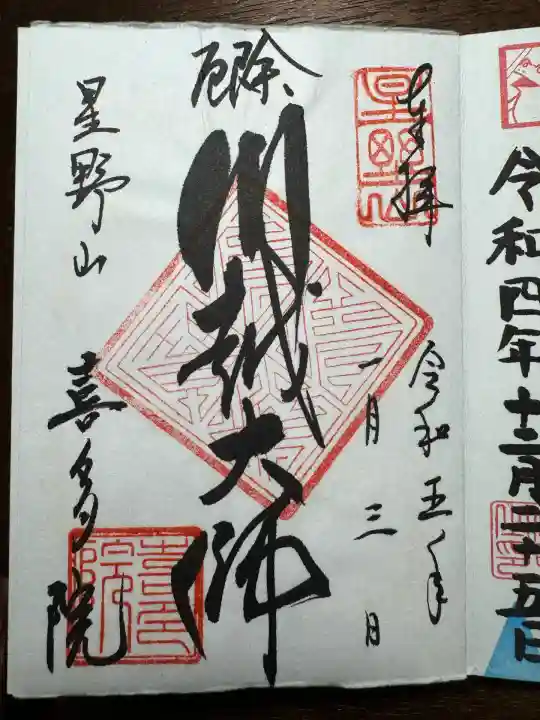 令和四年十二月二十五日
奉拝
星野山
令和五年
一月三日
厄除
川越大師
星野山 喜多院
喜多院